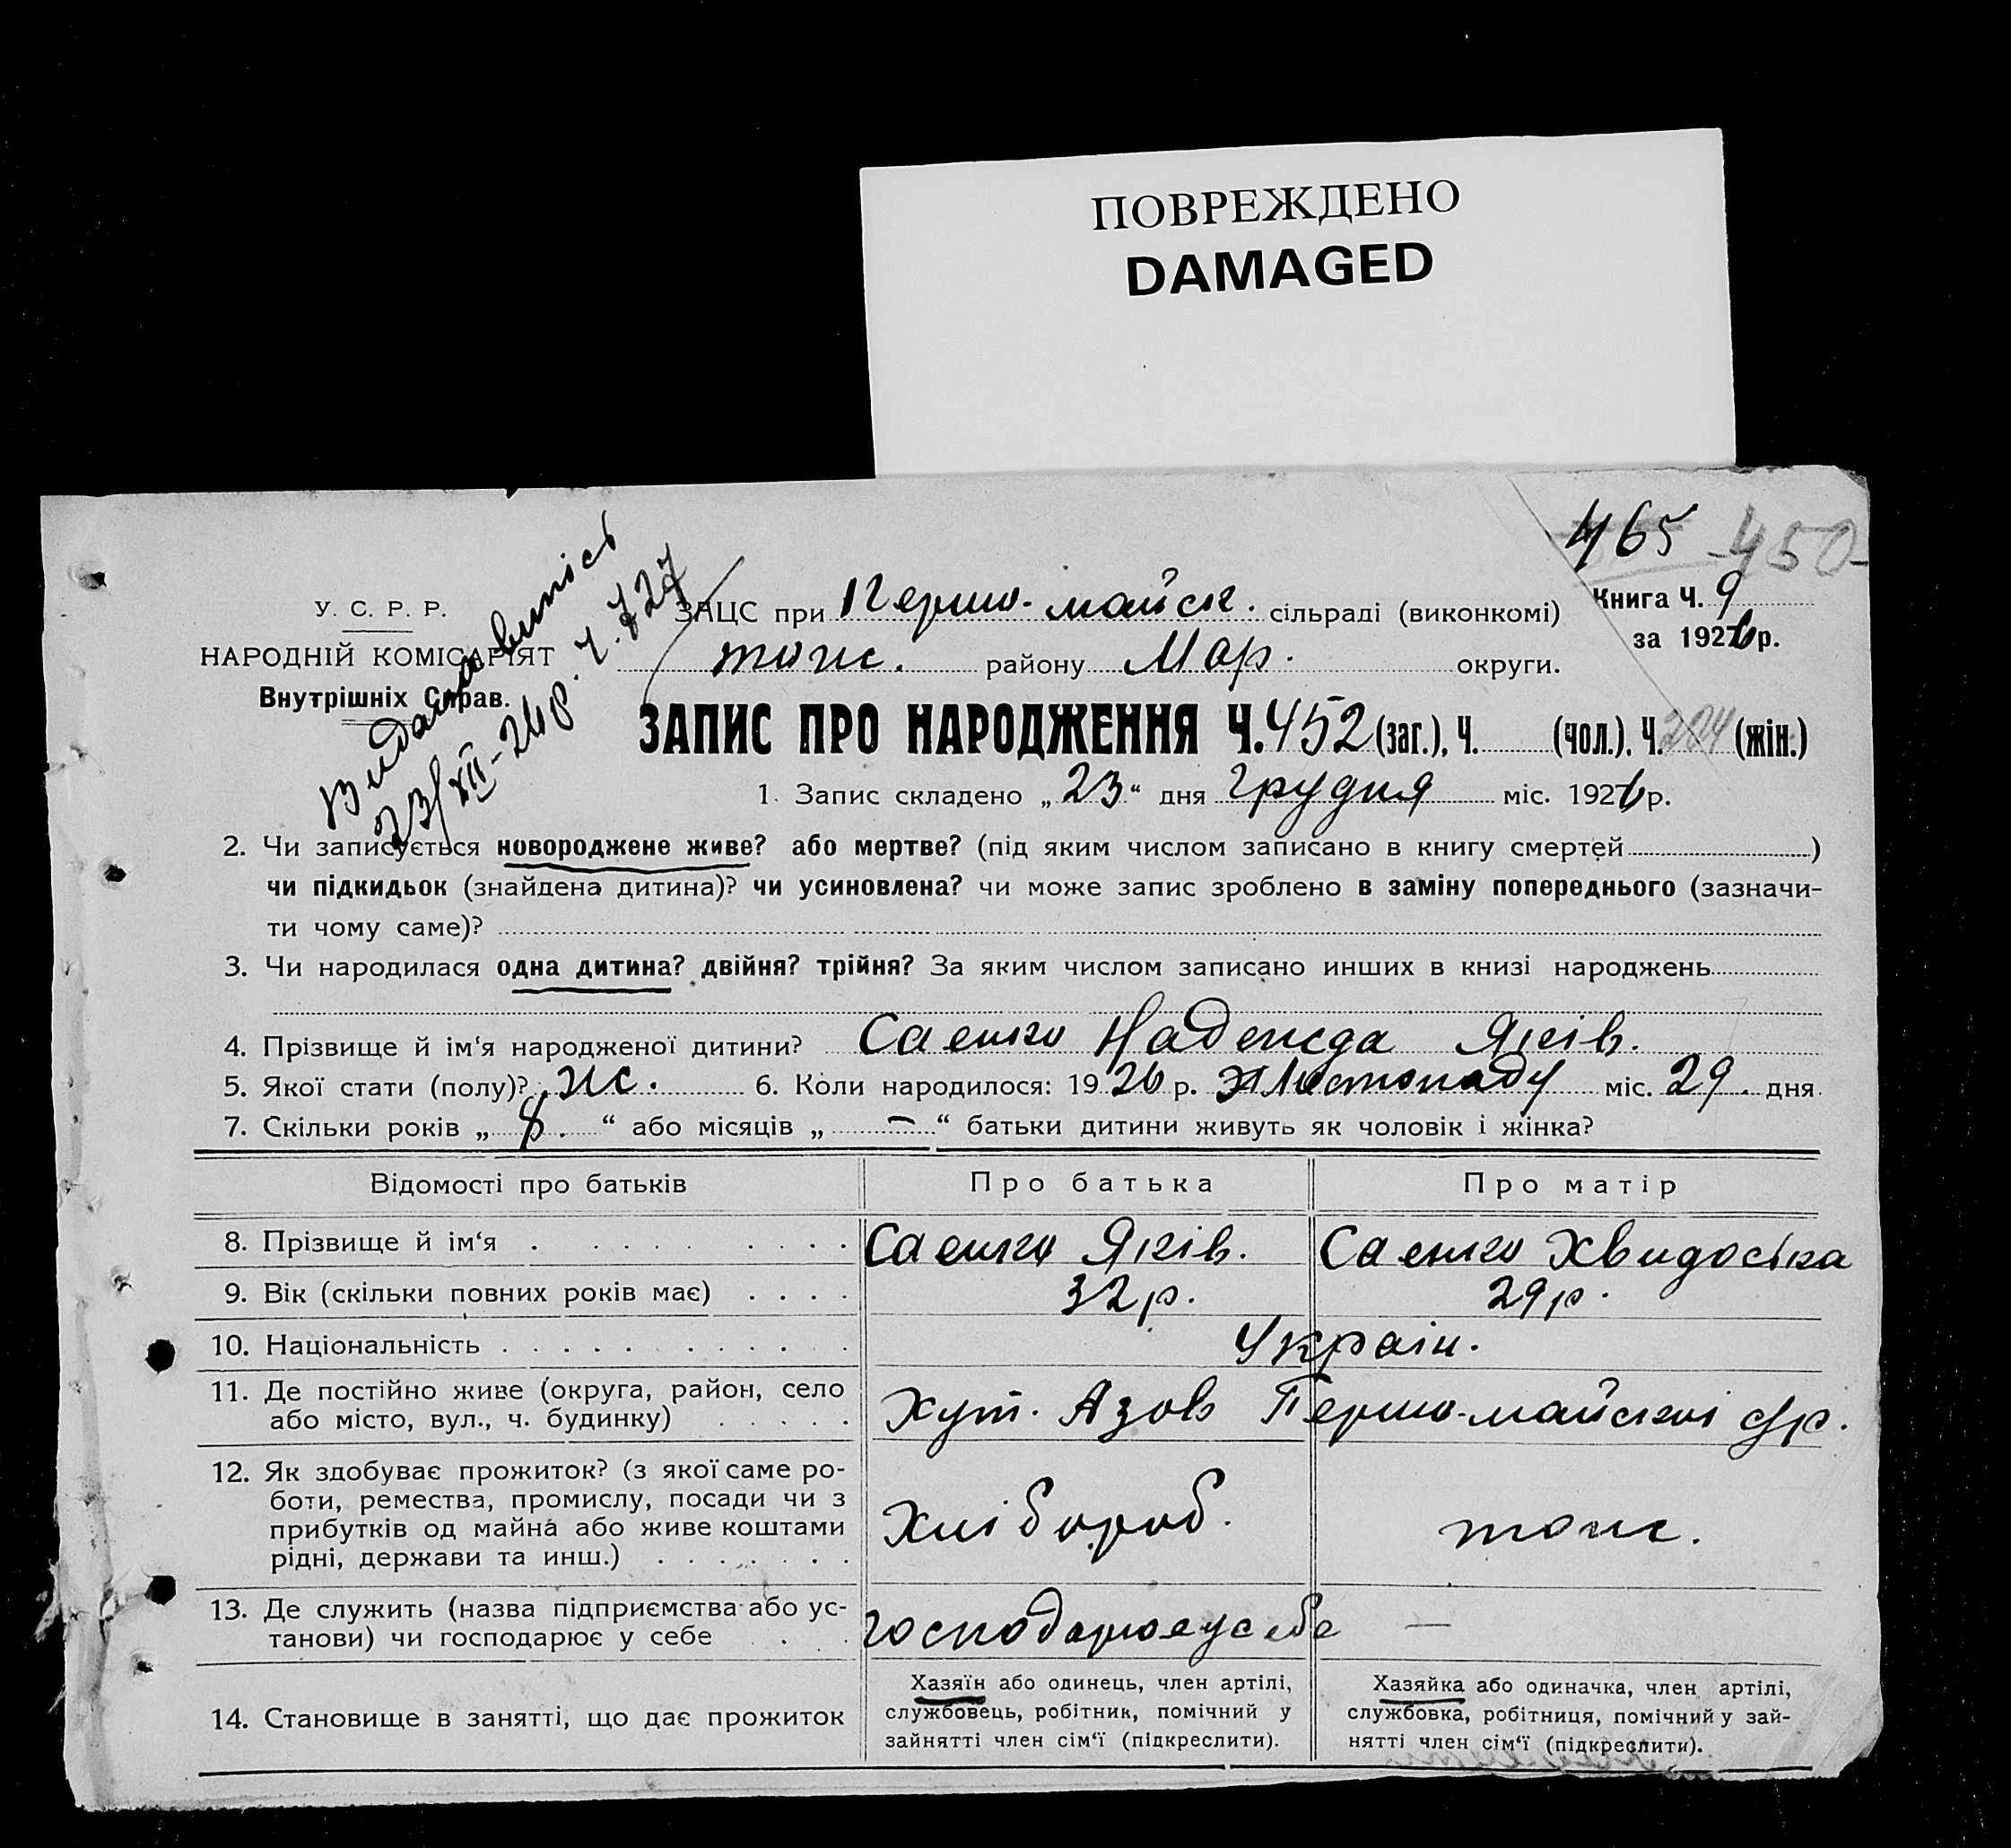 ПОВРЕЖДЕНО
DAMAGED
465 450
Видана випісь
23/XII-26 р. ч. 727
У. С. Р. Р.
НАРОДНІЙ КОМІСАРІЯТ
Внутрішніх Справ.
ЗАЦС при Першо-майськ. сільраді (виконкомі)
тоже. району Мар. округи.
Книга Ч. 9
за 1926 р.
ЗАПИС ПРО НАРОДЖЕННЯ Ч. 452 (заг.), Ч. (чол.). Ч. 204 (жін.)
1. Запис складено „23“ дня грудня міс. 1926 р.
2. Чи записується новороджене живе? або мертве? (під яким числом записано в книгу смертей )
чи підкидьок (знайдена дитина)? чи усиновлена? чи може запис зроблено в заміну попереднього (зазначи-
ти чому саме)?
3. Чи народилася одна дитина? двійня? трійня? За яким числом записано инших в книзі народжень
4. Прізвище й ім‘я народженої дитини? Саенко Надежда Яків.
5. Якої стати (полу)? ж. 6. Коли народилося: 1926 р. Листопаду міс. 29. дня
7. Скільки років „ 8. “ або місяців „ — “ батьки дитини живуть як чоловік і жінка?
Відомості про батьків Про батька Про матір
8. Прізвище й ім‘я Саенко Яків. Саенко Хвидоська
9. Вік (скільки повних років має) 32 р. 29 р.
10. Національність Україн.
11. Де постійно живе (округа, район, село
або місто, вул., ч. будинку) Хут. Азов Першо-майської с/р.
12. Як здобуває прожиток? (з якої саме ро-
боти, ремества, промислу, посади чи з
прибутків од майна або живе коштами
рідні, держави та инш.) Хлібороб. тоже.
13. Де служить (назва підприємства або ус-
танови) чи господарює у себе господарює у себе —
14. Становище в занятті, що дає прожиток
Хазяїн або одинець, член артілі,
службовець, робітник, помічний у
зайнятті член сім‘ї (підкреслити).
Хазяйка або одиначка, член артілі,
службовка, робітниця, помічний у зай-
нятті член сім‘ї (підкреслити).